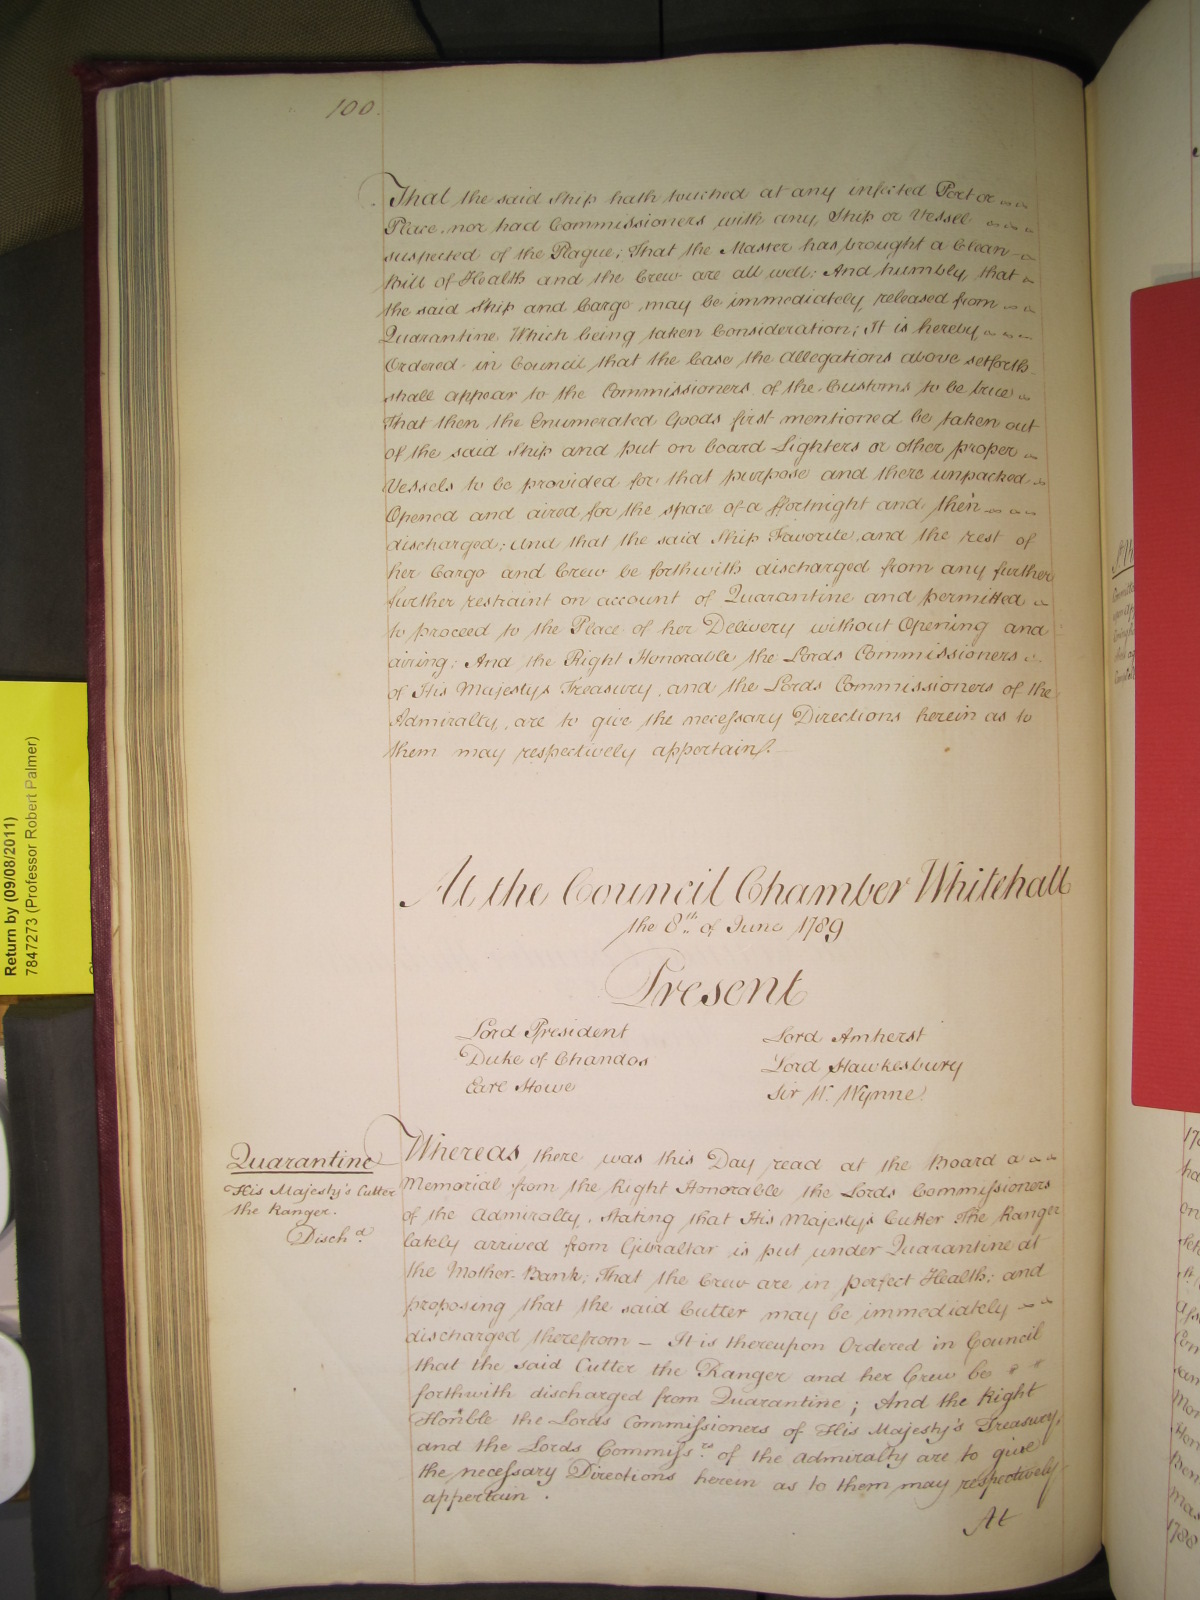 100.
That the said Ship hath touched at any infected Port or
Place, nor had Commissioners with any Ship or Vessel
suspected of the Plague; That the Master has brought a Clean
Bill of Health and the Crew are all well: And humbly, that
the said Ship and Cargo may be immediately released from
Quarantine. Which being taken Consideration; It is hereby
Ordered in Council that the Case the Allegations above setforth
shall appear to the Commissioners of the Customs to be true
That then the Enumerated Goods first mentioned be taken out
of the said Ship and put on board Lighters or other proper
Vessels to be provided for that purpose and there unpacked
Opened and aired for the space of a ffortnight and then
discharged; And that the said Ship Favorite and the rest of
her Cargo and Crew be forthwith discharged from any further
further restraint on account of Quarantine and permitted
to proceed to the Place of her Delivery without Opening and
airing: And the Right Honorable the Lords Commissioners
of His Majestys Treasury, and the Lords Commissioners of the
Admiralty, are to give the necessary Directions herein as to
them may respectively appertain.
At the Council Chamber Whitehall
the 8th of June 1789
Present
Lord President
Duke of Chandos
Earl Howe
Lord Amherst
Lord Hawkesbury
Sir W. Wynne.
Quarantine
His Majesty's Cutter
the Ranger.
Dischd
Whereas there was this Day read at the Board a
Memorial from the Right Honorable the Lords Commissioners
of the Admiralty, Stating that His Majesty's Cutter The Ranger
lately arrived from Gibraltar is put under Quarantine at
the Mother Bank; That the Crew are in perfect Health; and
proposing that the said Cutter may be immediately
discharged therefrom — It is thereupon Ordered in Council
that the said Cutter the Ranger and her Crew be
forthwith discharged from Quarantine; And the Right
Honble the Lords Commissioners of His Majesty's Treasury,
and the Lords Commissrs of the Admiralty are to give
the necessary Directions herein as to them may respectively
appertain.
At
Return by (09/08/2011)
7847273 (Professor Robert Palmer)